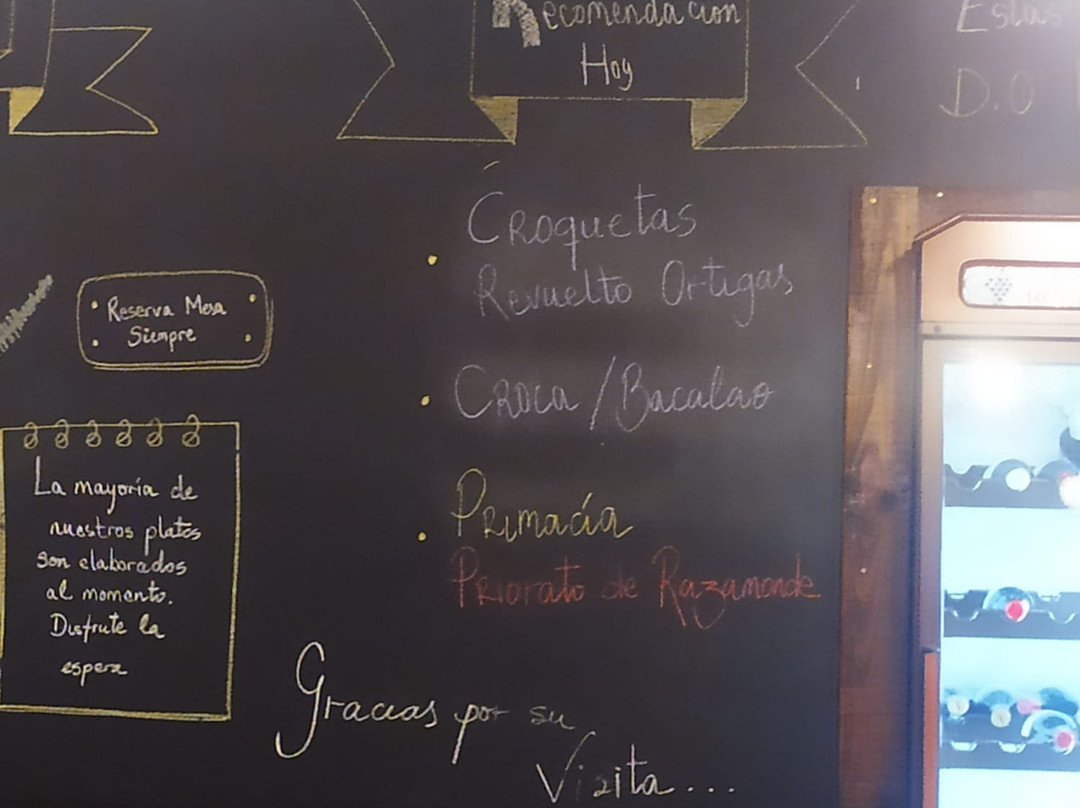 Recomendacion
Hoy
Estas
D.O
Croquetas
Revuelto Ortigas
Croca / Bacalao
Primacía
Priorato de Razamonde
Reserva Mesa
Siempre
La mayoría de
nuestros platos
son elaborados
al momento.
Disfrute la
espera
Gracias por su
Visita...